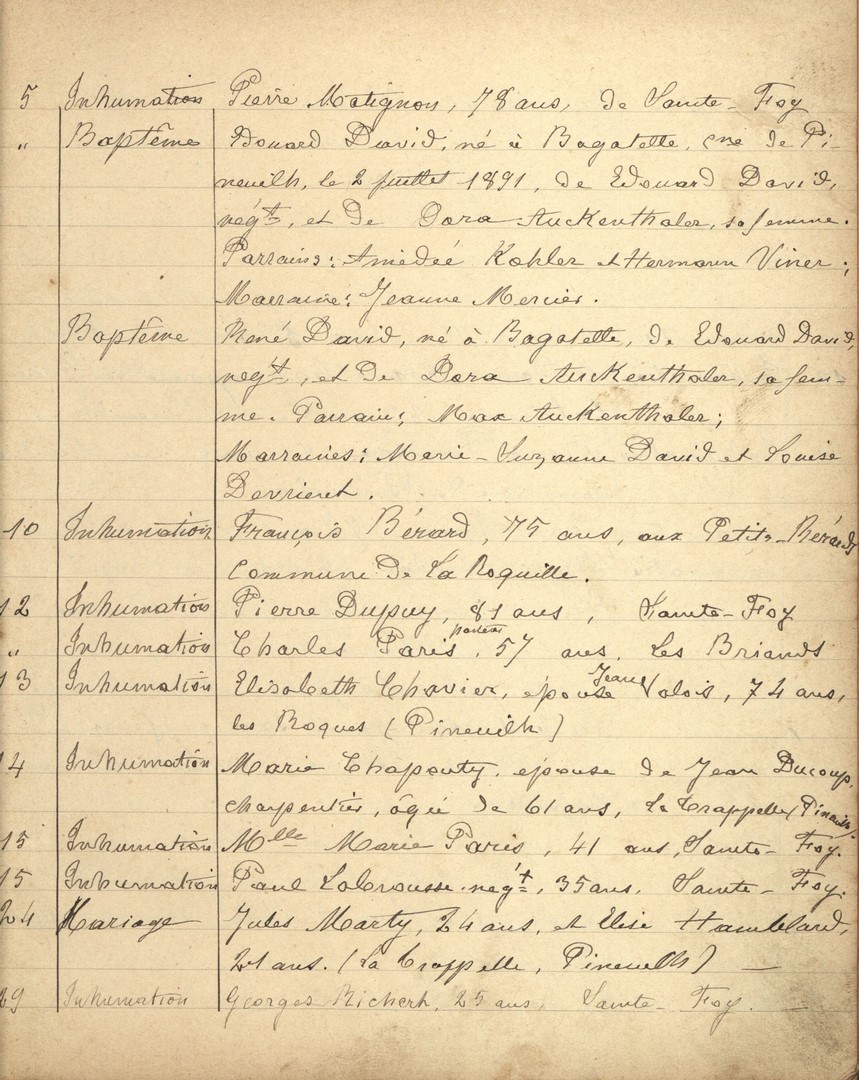 5 Inhumation Pierre Matignon, 78 ans, de Sainte-Foy
" Baptême Edouard David, né à Bagatelle, cne de Pi-
neuilh, le 2 juillet 1891, de Edouard David,
négt, et de Dora Auckenthaler, sa femme.
Parrains: Amédée Kohler et Hermann Viner;
Marraine: Jeanne Mercier.
Baptême René David, né à Bagatelle, de Edouard David,
négt, et de Dora Auckenthaler, sa fem-
me. Parrain: Max Auckenthaler;
Marraines: Marie-Suzanne David et Louise
Devrient.
10 Inhumation François Bérard, 75 ans, aux Petits-Bérards
Commune de La Roquille.
12 Inhumation Pierre Dupuy, 81 ans, Sainte-Foy
" Inhumation Charles Paris, pasteur, 57 ans, Les Briands
13 Inhumation Elisabeth Chavier, épouse Jean Valois, 74 ans,
les Roques (Pineuilh)
14 Inhumation Marie Chapouty, épouse de Jean Ducoup,
charpentier, âgée de 61 ans, La Trappelle (Pineuilh).
15 Inhumation Mlle Marie Paris, 41 ans, Sainte-Foy.
15 Inhumation Paul Labrousse négt, 35 ans, Sainte-Foy.
24 Mariage Jules Marty, 24 ans, et Elise Hamblard,
21 ans. (La Trappelle, Pineuilh) —
29 Inhumation Georges Richert, 25 ans, Sainte-Foy. —